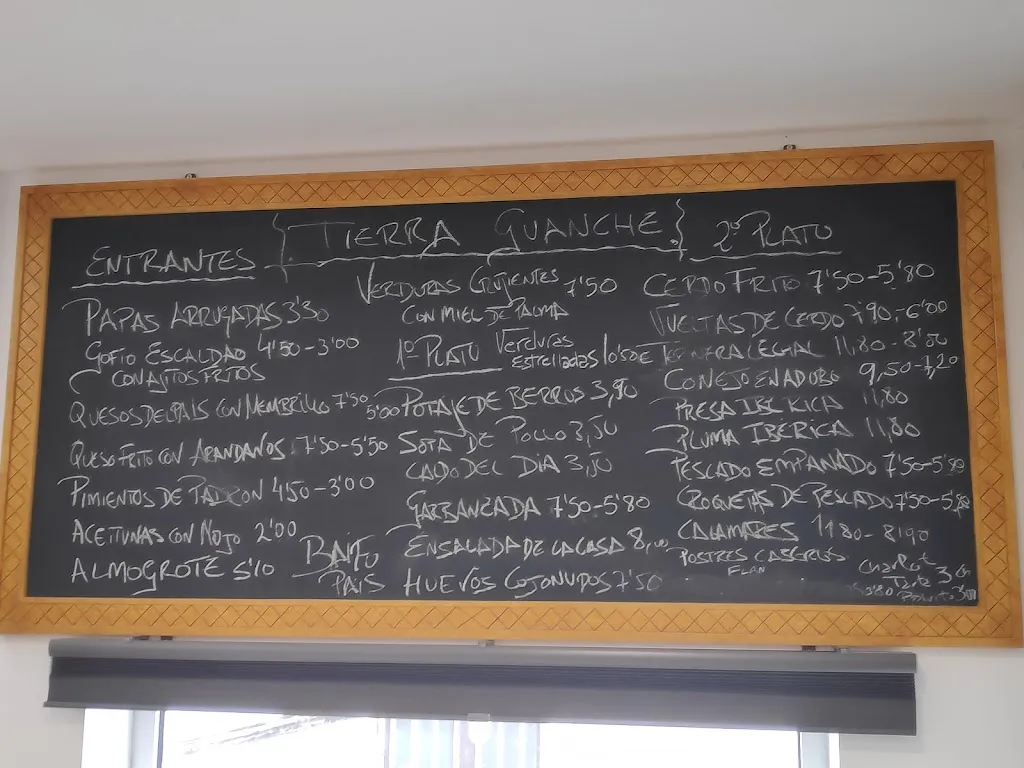 { TIERRA GUANCHE }
ENTRANTES
PAPAS ARRUGADAS 3'30
GOFIO ESCALDAO 4'50-3'00
CON AJITOS FRITOS
QUESOS DEL PAIS CON MEMBRILLO 7'50 5'00
QUESO FRITO CON ARANDANOS 7'50-5'50
PIMIENTOS DE PADRON 4'50-3'00
ACEITUNAS CON MOJO 2'00
ALMOGROTE 5'10
BAIFO
PAIS
VERDURAS CRUJIENTES 7'50
CON MIEL DE PALMA
1º PLATO
Verduras
estrelladas 10'50€
POTAJE DE BERROS 3,90
SOTA DE POLLO 3,50
CALDO DEL DIA 3,50
GARBANZADA 7'50-5'80
ENSALADA DE LA CASA 8,00
HUEVOS COJONUDOS 7'50
2º PLATO
CERDO FRITO 7'50-5'80
VUELTAS DE CERDO 7'90-6'00
TERNERA LEGIAL 11,80-8'80
CONEJO EN ADOBO 9,50-7,20
PRESA IBERICA 11,80
PLUMA IBERICA 11,80
PESCADO EMPANADO 7'50-5'80
CROQUETAS DE PESCADO 7'50-5,80
CALAMARES 11'80-8'90
POSTRES CASEROS
FLAN
Charlot
Tarta 3
3'80